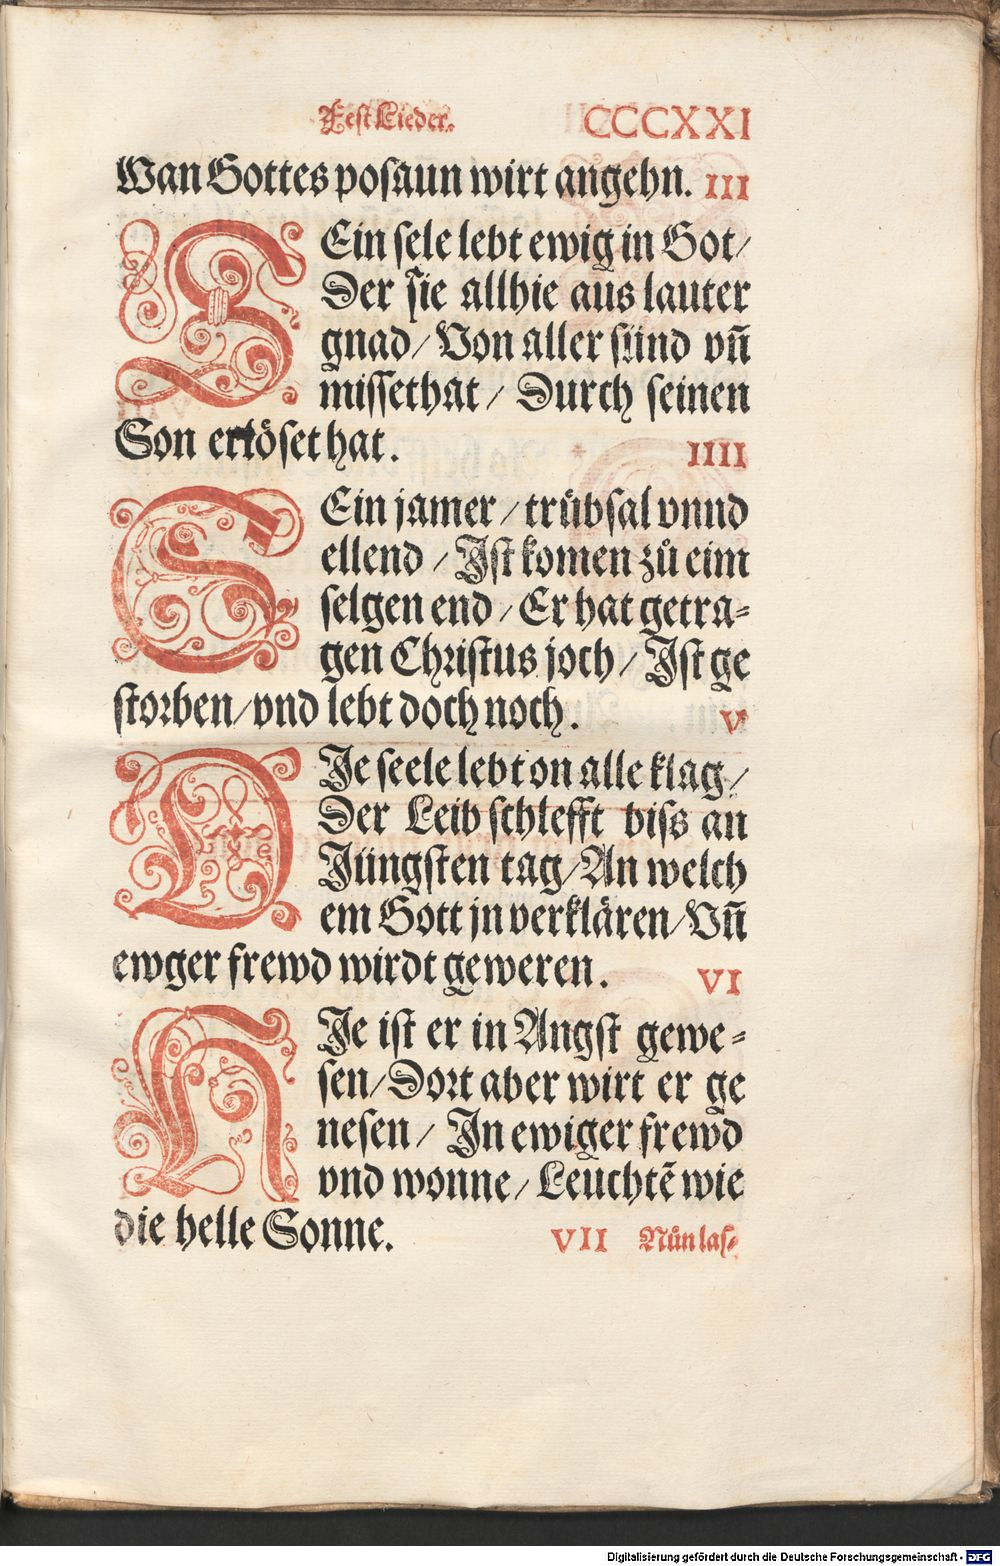 Fest Lieder. CCCXXI
Wan Gottes posaun wirt angehn. III
SEin sele lebt ewig in Got/
Der sie allhie aus lauter
gnad/ Von aller sünd vñ
missethat/ Durch seinen
Son erlöset hat. IIII
SEin jamer/ trübsal vnnd
ellend/ Ist komen zů eim
selgen end/ Er hat getra-
gen Christus joch/ Ist ge
storben/ vnd lebt doch noch. V
DIe seele lebt on alle klag/
Der Leib schlefft biss an
Jüngsten tag/ An welch
em Gott jn verklären/ Vñ
ewger frewd wirdt geweren. VI
HIe ist er in Angst gewe-
sen/ Dort aber wirt er ge
nesen/ In ewiger frewd
vnd wonne/ Leuchtẽ wie
die helle Sonne. VII Nůn las-
Digitalisierung gefördert durch die Deutsche Forschungsgemeinschaft - DFG